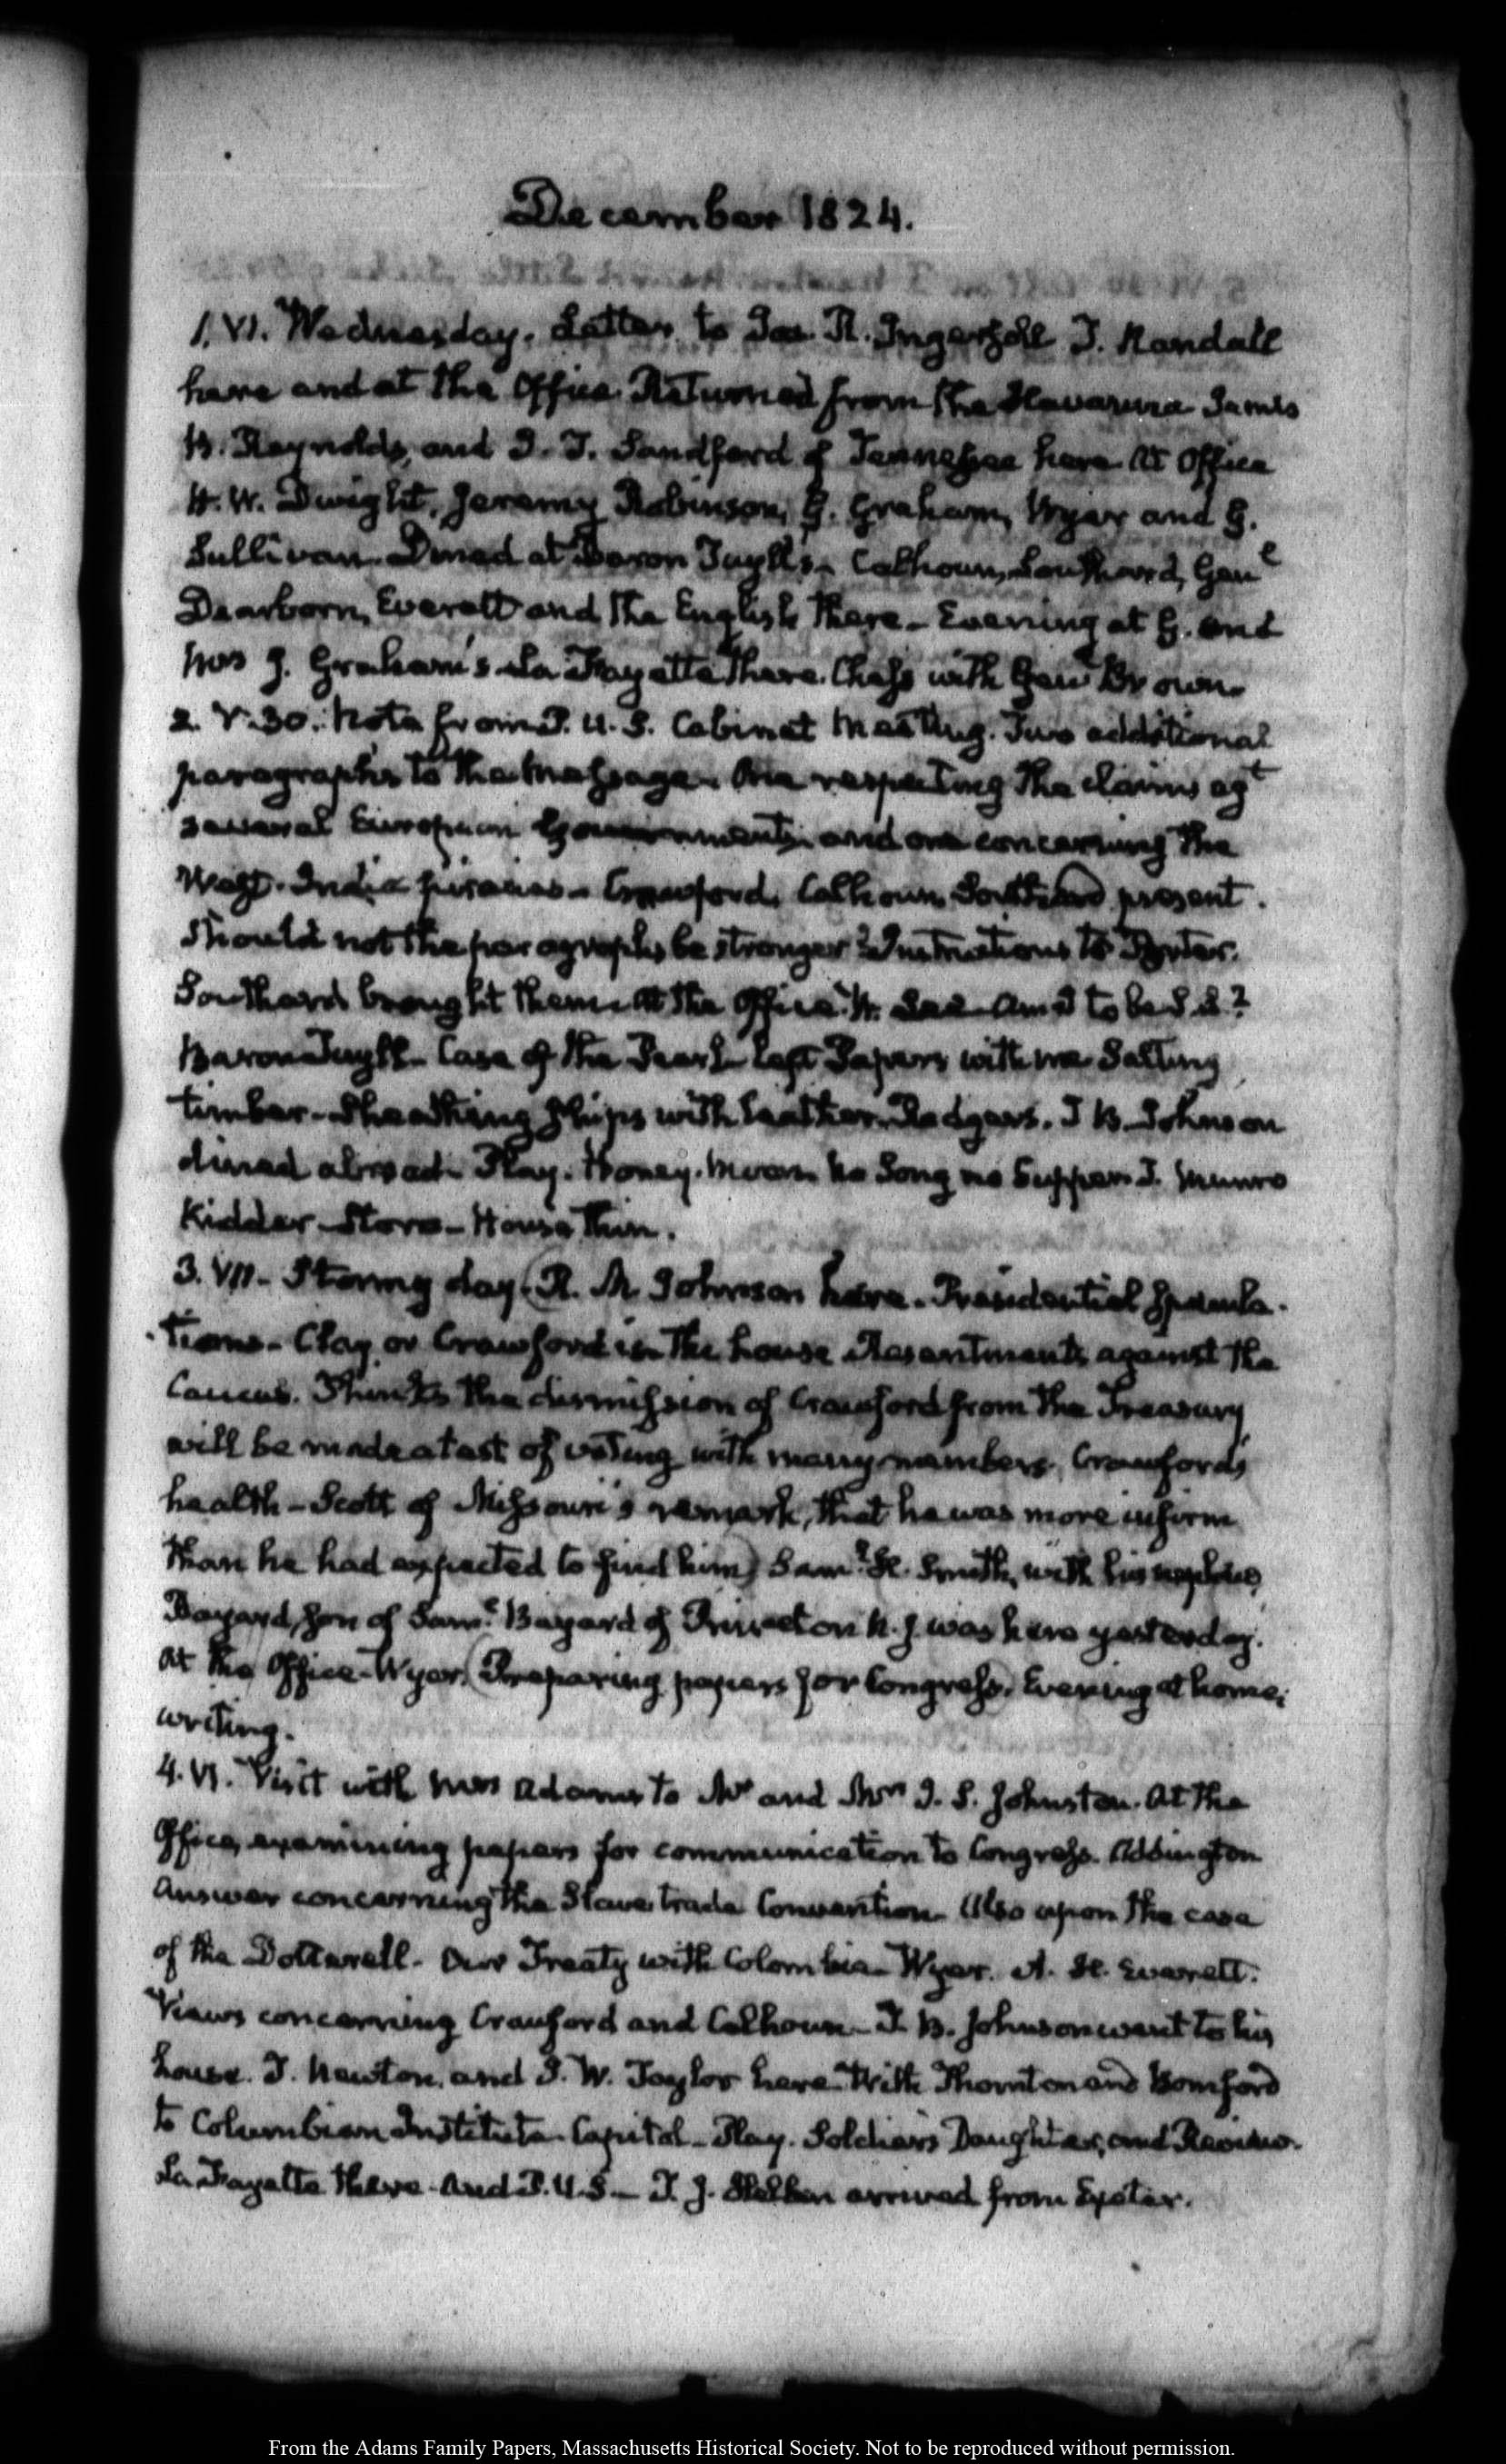 December 1824.
1. VI. Wednesday. Letter to Jos. R. Ingersoll T. Randall
here and at the Office. Returned from the Havanna James
B. Reynolds, and J. T. Sandford of Tennessee here. At Office
H. W. Dwight, Jeremy Robinson, G. Graham, Wyer and G.
Sullivan. Dined at Baron Tuyll's. Calhoun, Southard, Genl
Dearborn, Everett and the English there. Evening at G. and
Mrs J. Graham's La Fayette there. Chess with Genl Brown.
2. V.30. Note from P. U. S. Cabinet Meeting. Two additional
paragraphs to the Message. One respecting the claims agt
several European Governments and one concerning the
West-India piracies. Crawford, Calhoun, Southard present.
Should not the paragraphs be stronger? Instructions to Porter.
Southard brought them at the Office. H. Lee. Am I to be S. S?
Baron Tuyll. Case of the Pearl. Left Papers with me Salting
timber. Sheathing Ships with leather. Rodgers. T B. Johnson
dined abroad. Play. Honey-Moon. No Song no Supper. J. Munro
Kidder. Store. House Thin.
3. VII. Stormy day. (R. M. Johnson here. Presidential Specula-
tions. Clay or Crawford in the house Resentments against the
Caucus. Thinks the dismission of Crawford from the Treasury
will be made a test of voting with many members. Crawford's
health. Scott of Missouri's remark, that he was more infirm
than he had expected to find him) Saml H. Smith, with his nephew
Bayard, son of Saml Bayard of Princeton N. J. was here yesterday.
At the Office. Wyer. (Preparing papers for Congress). Evening at home,
writing.
4. VI. Visit with Mrs Adams to Mr and Mrs J. S. Johnston. At the
Office, examining papers for communication to Congress. Addington
Answer concerning the Slave trade Convention. Also upon the case
of the Dotterell. Our Treaty with Colombia. Wyer. A. H. Everett.
Views concerning Crawford and Calhoun. T. B. Johnson went to his
house. T. Newton, and J. W. Taylor here. With Thornton and Bomford
to Columbian Institute. Capitol. Play. Soldier's Daughter, and Review.
La Fayette there. And P.U.S. T. J. Hellen arrived from Exeter.
From the Adams Family Papers, Massachusetts Historical Society. Not to be reproduced without permission.